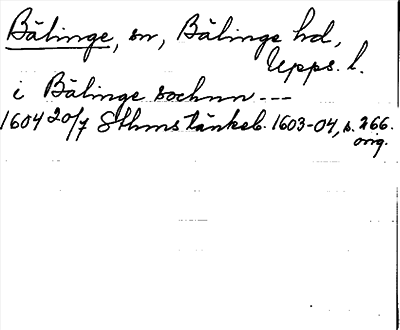 Bälinge, sn, Bälinge hd,
Upps. l.
i Bälinge sochnn ---
1604 20/7 Sthms tänkeb. 1603-04, s. 266.
orig.